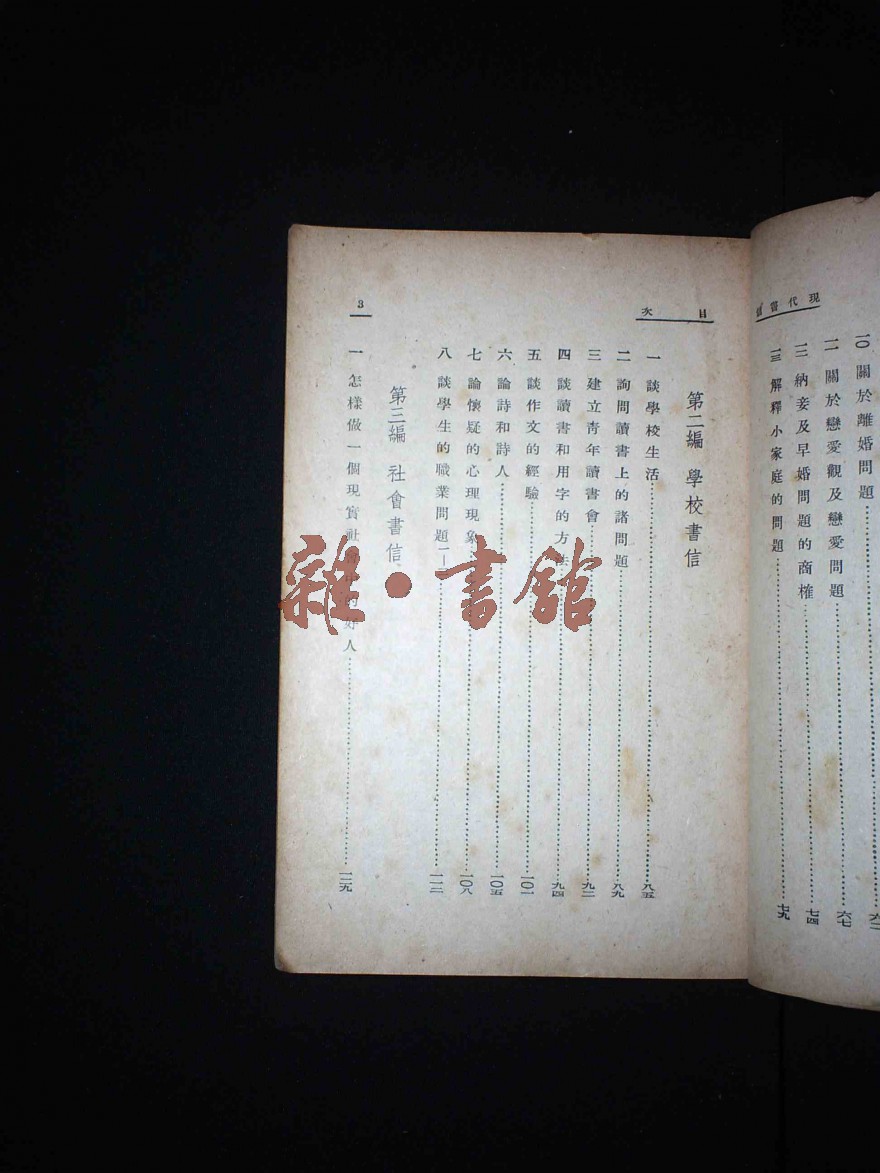 現代書信
一〇 關於離婚問題
一一 關於戀愛觀及戀愛問題 六七
一二 納妾及早婚問題的商榷 七四
一三 解釋小家庭的問題 七九
目次
第二編 學校書信
一 談學校生活 八五
二 詢問讀書上的諸問題 八九
三 建立靑年讀書會 九二
四 談讀書和用字的方法 九四
五 談作文的經驗 一〇一
六 論詩和詩人 一〇五
七 論懷疑的心理現象 一〇八
八 談學生的職業問題 一一二
第三編 社會書信
一 怎樣做一個現實社 的好人 一二九
3
雜·書館